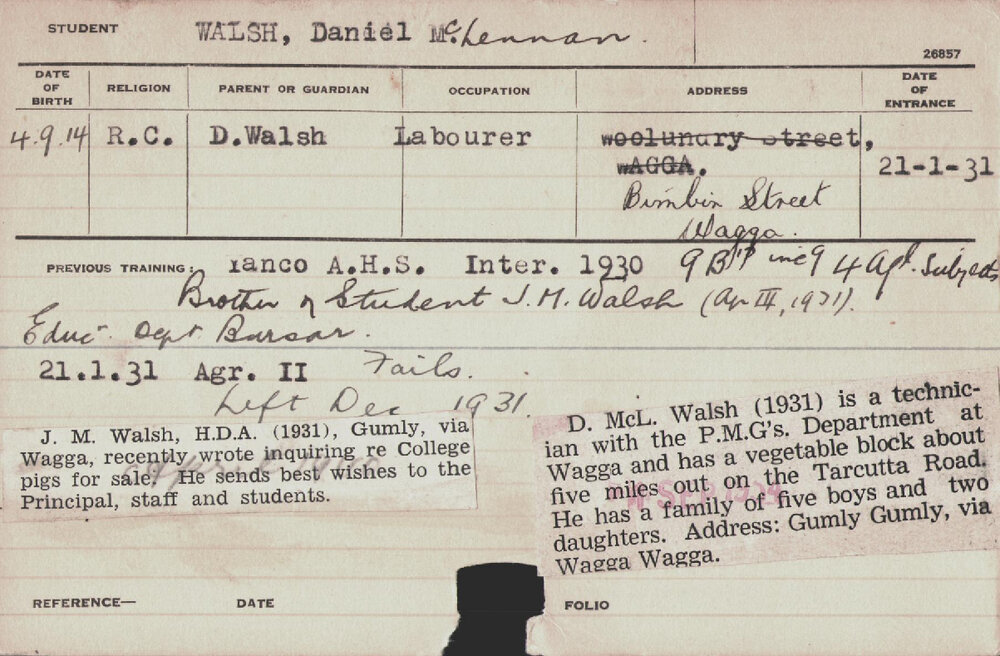 STUDENT WALSH, Daniel McLennan.
26857
DATE OF BIRTH RELIGION PARENT OR GUARDIAN OCCUPATION ADDRESS DATE OF ENTRANCE
4.9.14 R.C. D.Walsh Labourer woolunury street,
WAGGA. 21-1-31
Bimbin Street
Wagga.
PREVIOUS TRAINING: Yanco A.H.S. Inter. 1930 9 B's incg 4 Agl. Subjects
Brother of Student J.M. Walsh (Agr III, 1931).
Educ Dept Bursar.
21.1.31 Agr. II Fails.
Left Dec 1931.
J. M. Walsh, H.D.A. (1931), Gumly, via
Wagga, recently wrote inquiring re College
pigs for sale. He sends best wishes to the
Principal, staff and students.
D. McL. Walsh (1931) is a technic-
ian with the P.M.G's. Department at
Wagga and has a vegetable block about
five miles out on the Tarcutta Road.
He has a family of five boys and two
daughters. Address: Gumly Gumly, via
Wagga Wagga.
REFERENCE— DATE FOLIO